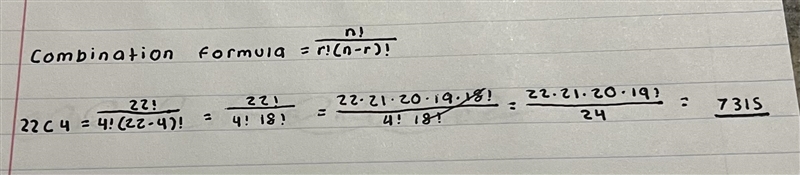 Combination formula = n!/r!(n-r)!
22C4 = 22!/4!(22-4)! = 22!/4! 18! = 22·21·20·19·18!/4! 18! = 22·21·20·19!/24 = 7315